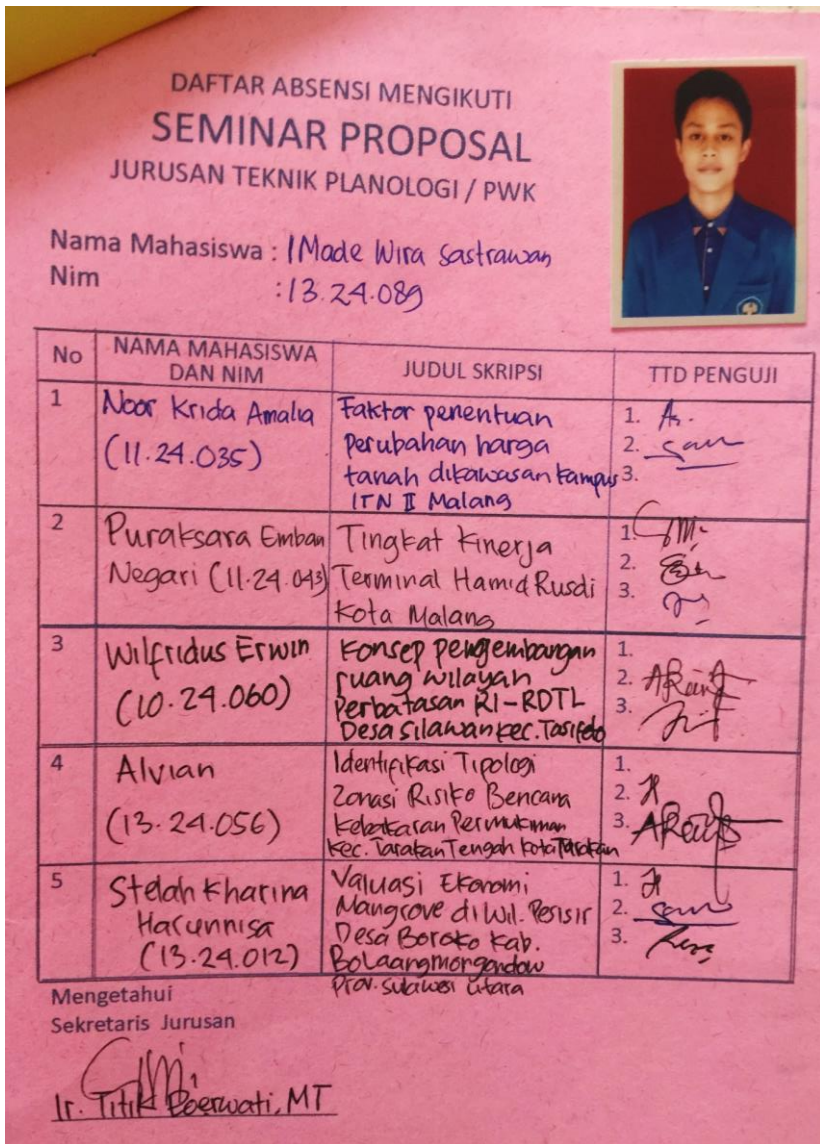 DAFTAR ABSENSI MENGIKUTI
SEMINAR PROPOSAL
JURUSAN TEKNIK PLANOLOGI / PWK
Nama Mahasiswa : I Made Wira Sastrawan
Nim : 13.24.089
No NAMA MAHASISWA DAN NIM JUDUL SKRIPSI TTD PENGUJI
1 Noor Krida Amalia Faktor penentuan 1.
(11.24.035) perubahan harga 2.
tanah dikawasan kampus 3.
ITN II Malang
2 Puraksara Emban Tingkat Kinerja 1.
Negari (11.24.043) Terminal Hamid Rusdi 2.
Kota Malang 3.
3 Wilfridus Erwin Konsep pengembangan 1.
(10.24.060) ruang wilayah 2.
Perbatasan RI-RDTL 3.
Desa Silawan kec. Tasifeto
4 Alvian Identifikasi Tipologi 1.
(13.24.056) Zonasi Risiko Bencana 2.
Kebakaran Permukiman 3.
Kec. Tarakan Tengah Kota Tarakan
5 Stelah Kharina Valuasi Ekonomi 1.
Harunnisa Mangrove di Wil. Pesisir 2.
(13.24.012) Desa Boroko Kab. 3.
Bolaangmongondow
Prov. Sulawesi Utara
Mengetahui
Sekretaris Jurusan
Ir. Titik Poerwati, MT